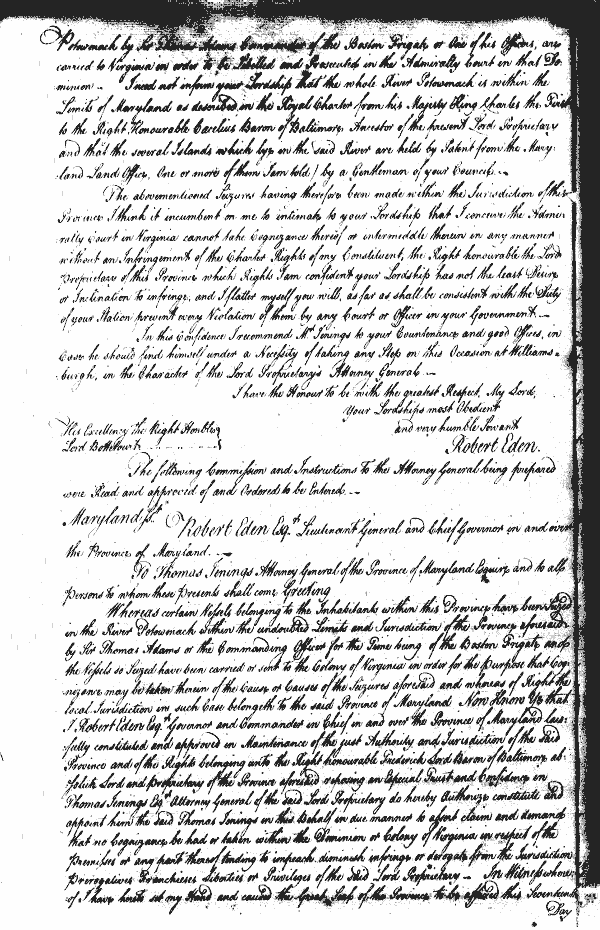 Potowmack by Sir Thomas Adams Commander of the Boston Frigate or One of his Officers, are
carried to Virginia in order to be Libelled and Prosecuted in the Admiralty Court in that Do
minion - I need not inform your Lordship that the whole River Potowmack is within the
Limits of Maryland as described in the Royal Charter from his Majesty King Charles the First
to the Right Honourable Cecelius Baron of Baltimore, Ancestor of the present Lord Proprietary
and that the several Islands which lye in the said River are held by Patent from the Mary
land Land Office, One or more of them I am told) by a Gentleman of your Council. -
The abovementioned Seizures having therefore been made within the Jurisdiction of this
Province I think it incumbent on me to intimate to your Lordship that I conceive the Admi
ralty Court in Virginia cannot take Cognizance thereof or intermiddle therein in any manner
without an Infringement of the Charter Rights of my Constituent, the Right honourable the Lord
Proprietary of this Province which Rights I am confident your Lordship has not the least Desire
or Inclination to infrenge, and I flatter myself you will, as far as shall be consistent with the Duty
of your Station prevent every Violation of them by any Court or Officer in your Government. -
In this Confidence I recommend Mr Jenings to your Countenance and good Offices, in
Case he should find himself under a Necessity of taking any Step on this Occasion at Williams-
burgh, in the Character of the Lord Proprietary's Attorney General -
I have the Honour to be with the greatest Respect, My Lord,
Your Lordships most Obedient
and very humble Servant
His Excellency The Right Honble
Lord Bottetourt
Robert Eden.
The following Commission and Instructions to the Attorney General being prepared
were Read and approved of and Ordered to be Entered. -
Maryland sst
Robert Eden Esqr Lieutenant General and Chief Governor in and over
the Province of Maryland. -
To Thomas Jenings Attorney General of the Province of Maryland Esquire and to all
Persons to whom these Presents shall come Greeting
Whereas certain Vessels belonging to the Inhabitants within this Province have been Seized
in the River Potowmack within the undoubted Limits and Jurisdiction of the Province aforesaid
by Sir Thomas Adams or the Commanding Officer for the Time being of the Boston Frigate and
the Vessels so Seized have been carried or sent to the Colony of Virginia in order for the Purpose that Cog
nizance may be taken therein of the Cause or Causes of the Seizures aforesaid and whereas of Right the
local Jurisdiction in such Case belongeth to the said Province of Maryland Now Know Ye that
I Robert Eden Esqr Governor and Commander in Chief in and over the Province of Maryland law
fully constituted and approved in Maintenance of the just Authority and Jurisdiction of the said
Province and of the Rights belonging unto the Right honourable Frederick Lord Baron of Baltimore ab
solute Lord and Proprietary of the Province aforesaid reposing an Especial Trust and Confidence in
Thomas Jenings Esqr Attorney General of the said Lord Proprietary do hereby Authorize constitute and
appoint him the said Thomas Jenings in this Behalf in due manner to assert claim and demand
that no Cognizance be had or taken within the Dominion or Colony of Virginia in respect of the
Premises or any part thereof tending to impeach diminish infringe or derogate from the Jurisdiction
Prerogatives Franchieses Liberties or Privileges of the said Lord Proprietary - In Witness where
of I have herith set my Hand and caused the Great Seal of the Province to be affixed this Seventeenth
Day